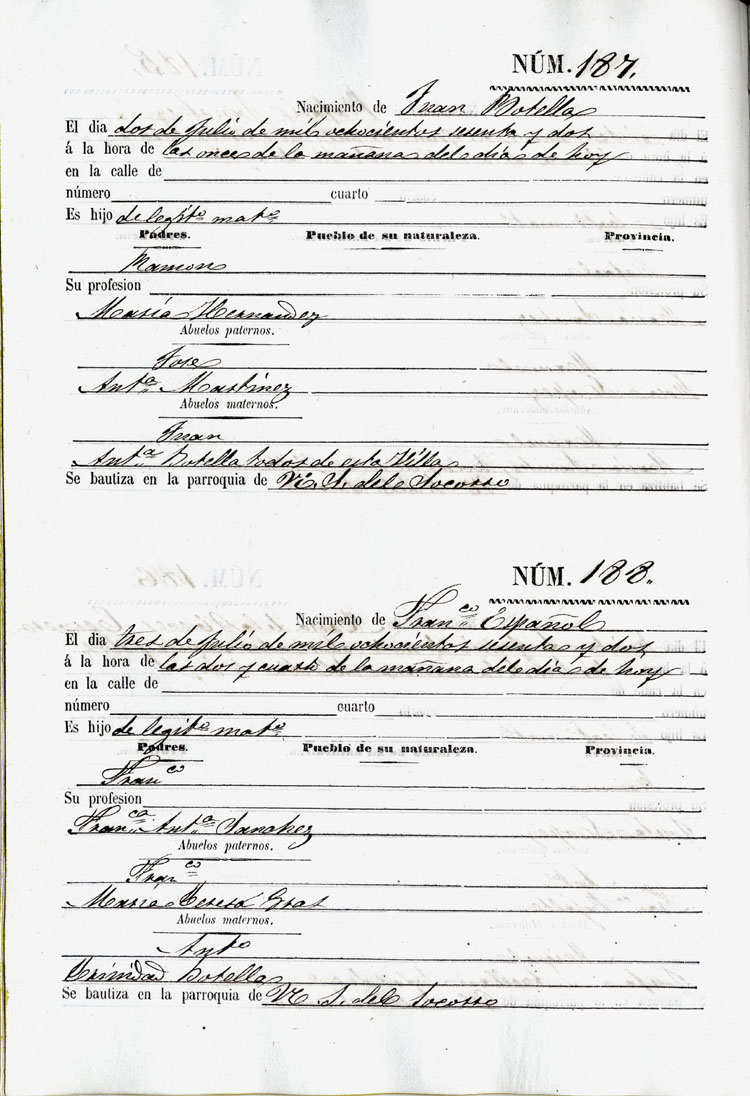 NÚM. 187.
Nacimiento de Juan Botella
El dia dos de Julio de mil ochocientos sesenta y dos
á la hora de las once de la mañana del dia de hoy
en la calle de
número cuarto
Es hijo de legit.º mat.º
Padres. Pueblo de su naturaleza. Provincia.
Ramon
Su profesion
María Hernandez
Abuelos paternos.
Jose
Ant.ª Martinez
Abuelos maternos.
Juan
Ant.ª Botella todos de esta Villa
Se bautiza en la parroquia de S. del Socorro
NÚM. 188.
Nacimiento de Fran.co Español
El dia tres de Julio de mil ochocientos sesenta y dos
á la hora de las dos y cuarto de la mañana del dia de hoy
en la calle de
número cuarto
Es hijo de legit.º mat.º
Padres. Pueblo de su naturaleza. Provincia.
Fran.co
Su profesion
Fran.ca Ant.ª Sanchez
Abuelos paternos.
Fran.co
María Teresa Gras
Abuelos maternos.
Ant.º
Trinidad Botella
Se bautiza en la parroquia de S. del Socorro